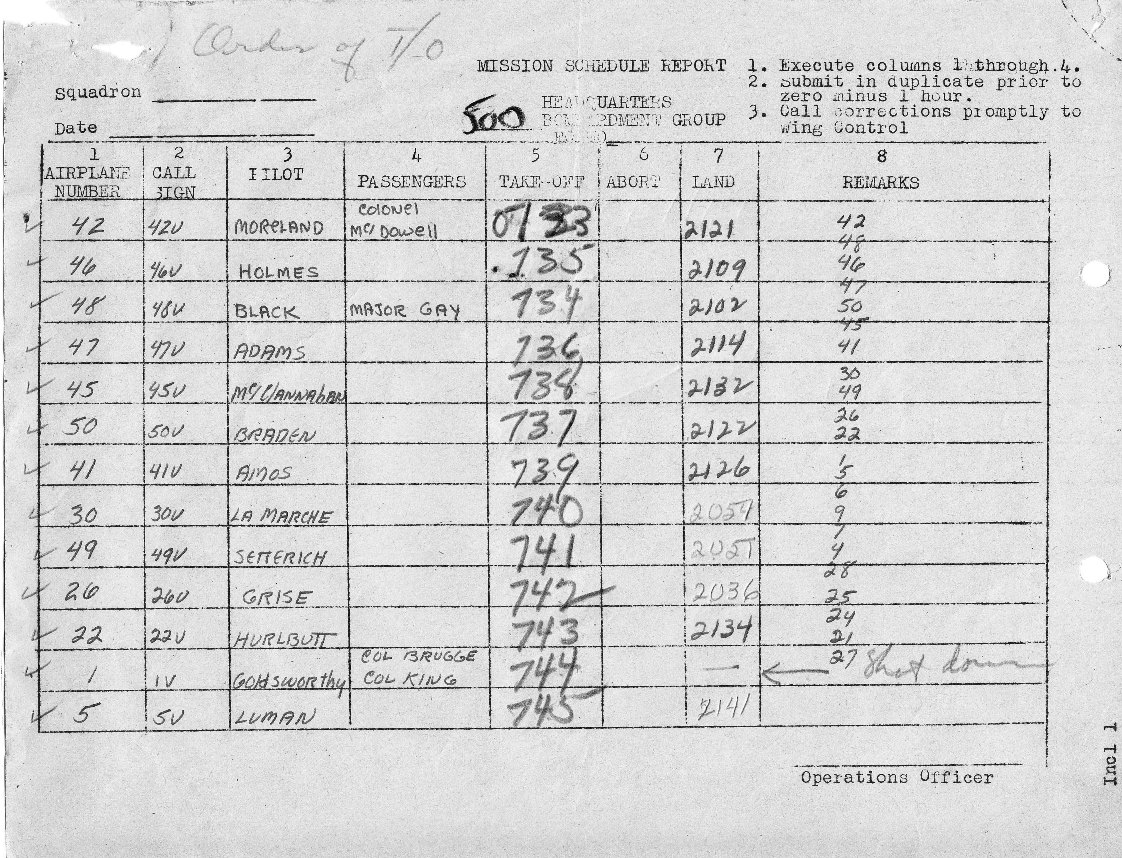 Order of T/O
MISSION SCHEDULE REPORT
1. Execute columns 1 through 4.
2. Submit in duplicate prior to
zero minus 1 hour.
3. Call corrections promptly to
Wing Control
Squadron
Date
HEADQUARTERS
500 BOMBARDMENT GROUP
1 2 3 4 5 6 7 8
AIRPLANE NUMBER CALL SIGN PILOT PASSENGERS TAKE-OFF ABORT LAND REMARKS
42 42V MORELAND Colonel McDowell 0733 2121 42
48
46 46V HOLMES 735 2109 46
47
48 48V BLACK MAJOR GAY 734 2102 50
45
47 47V ADAMS 736 2114 41
30
45 45V McClANNAhAN 738 2132 49
26
50 50V BRADEN 737 2122 22
41 41V AMOS 739 2126 1
5
6
30 30V LA MARCHE 740 2054 9
7
49 49V SETTERICH 741 4
28
26 26V GRISE 742 2036 25
24
22 22V HURLBUTT 743 2134 21
27
1 1V GOldSworthy COL BRUGGE COL KING 744 — Shot down
5 5V LUMAN 745 2141
Operations Officer
Incl 1